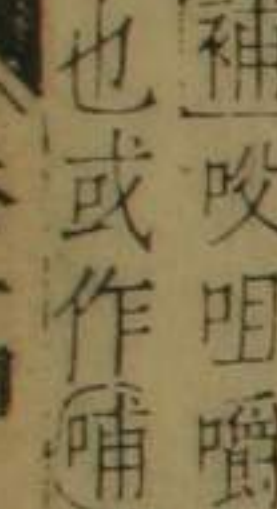 補㕮咀嚼
也或作哺